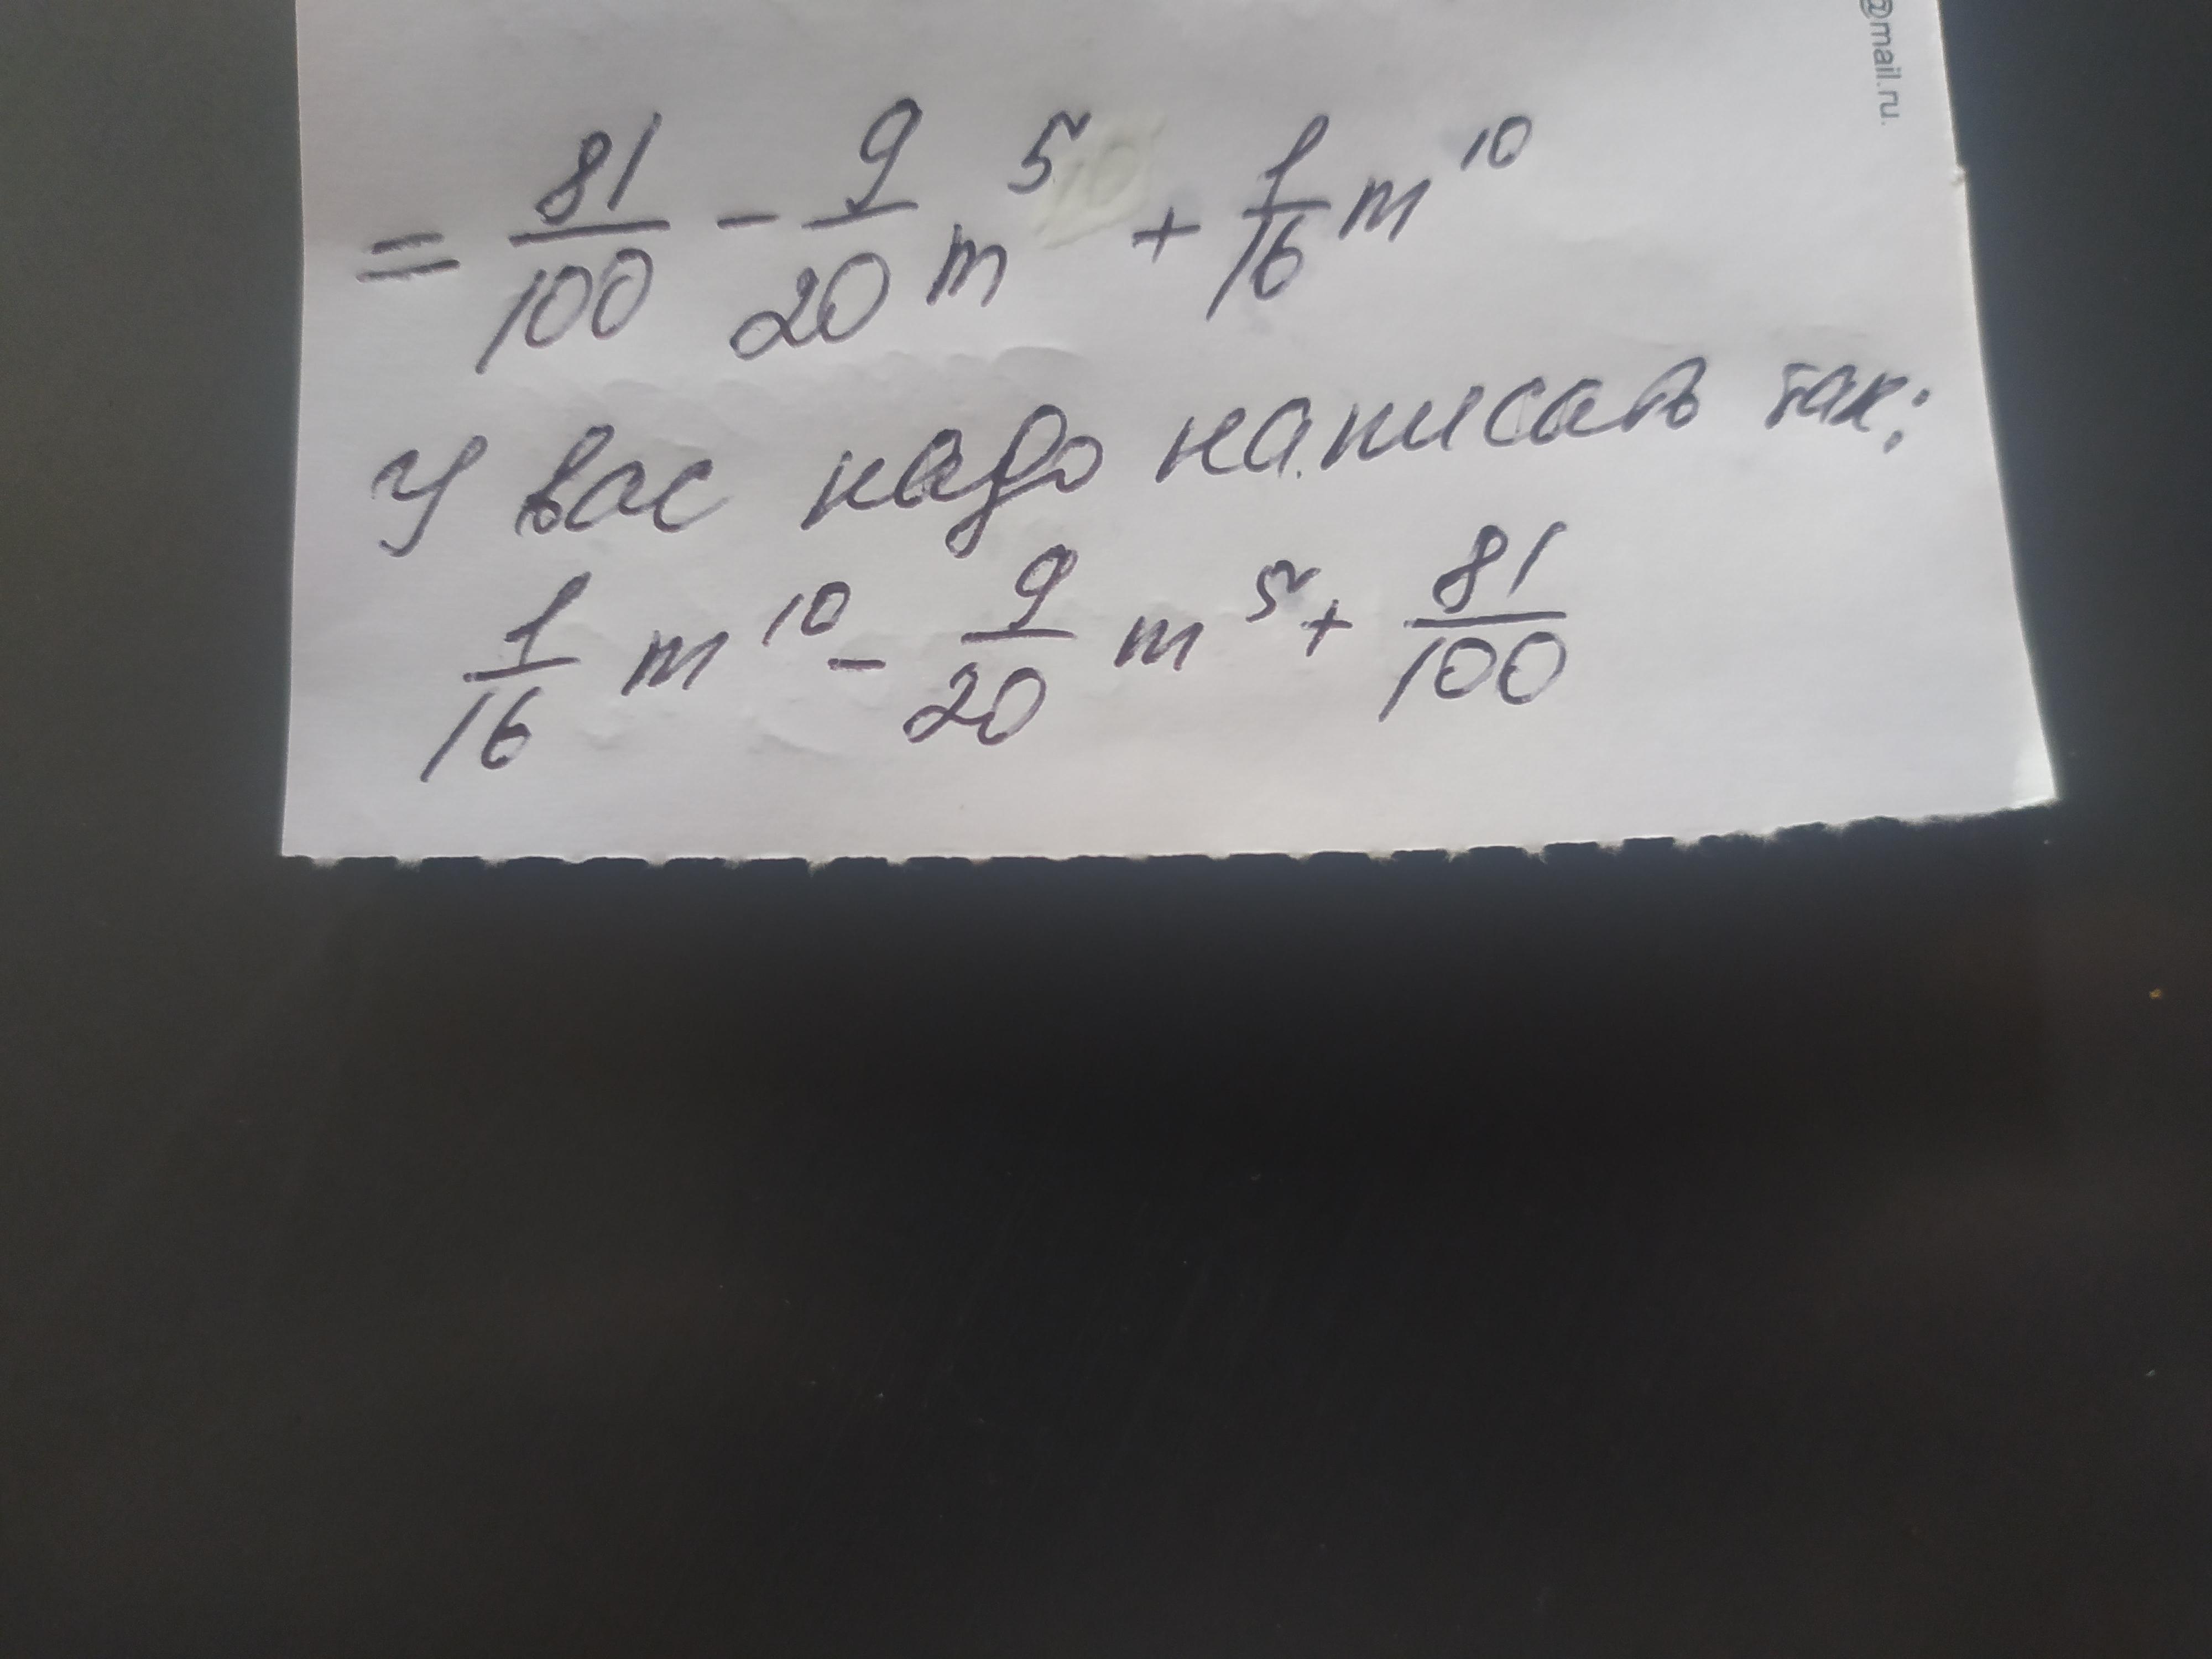 @mail.ru.
= 81/100 - 9/20 m^5 + 1/16 m^10
У вас надо написать так:
1/16 m^10 - 9/20 m^5 + 81/100